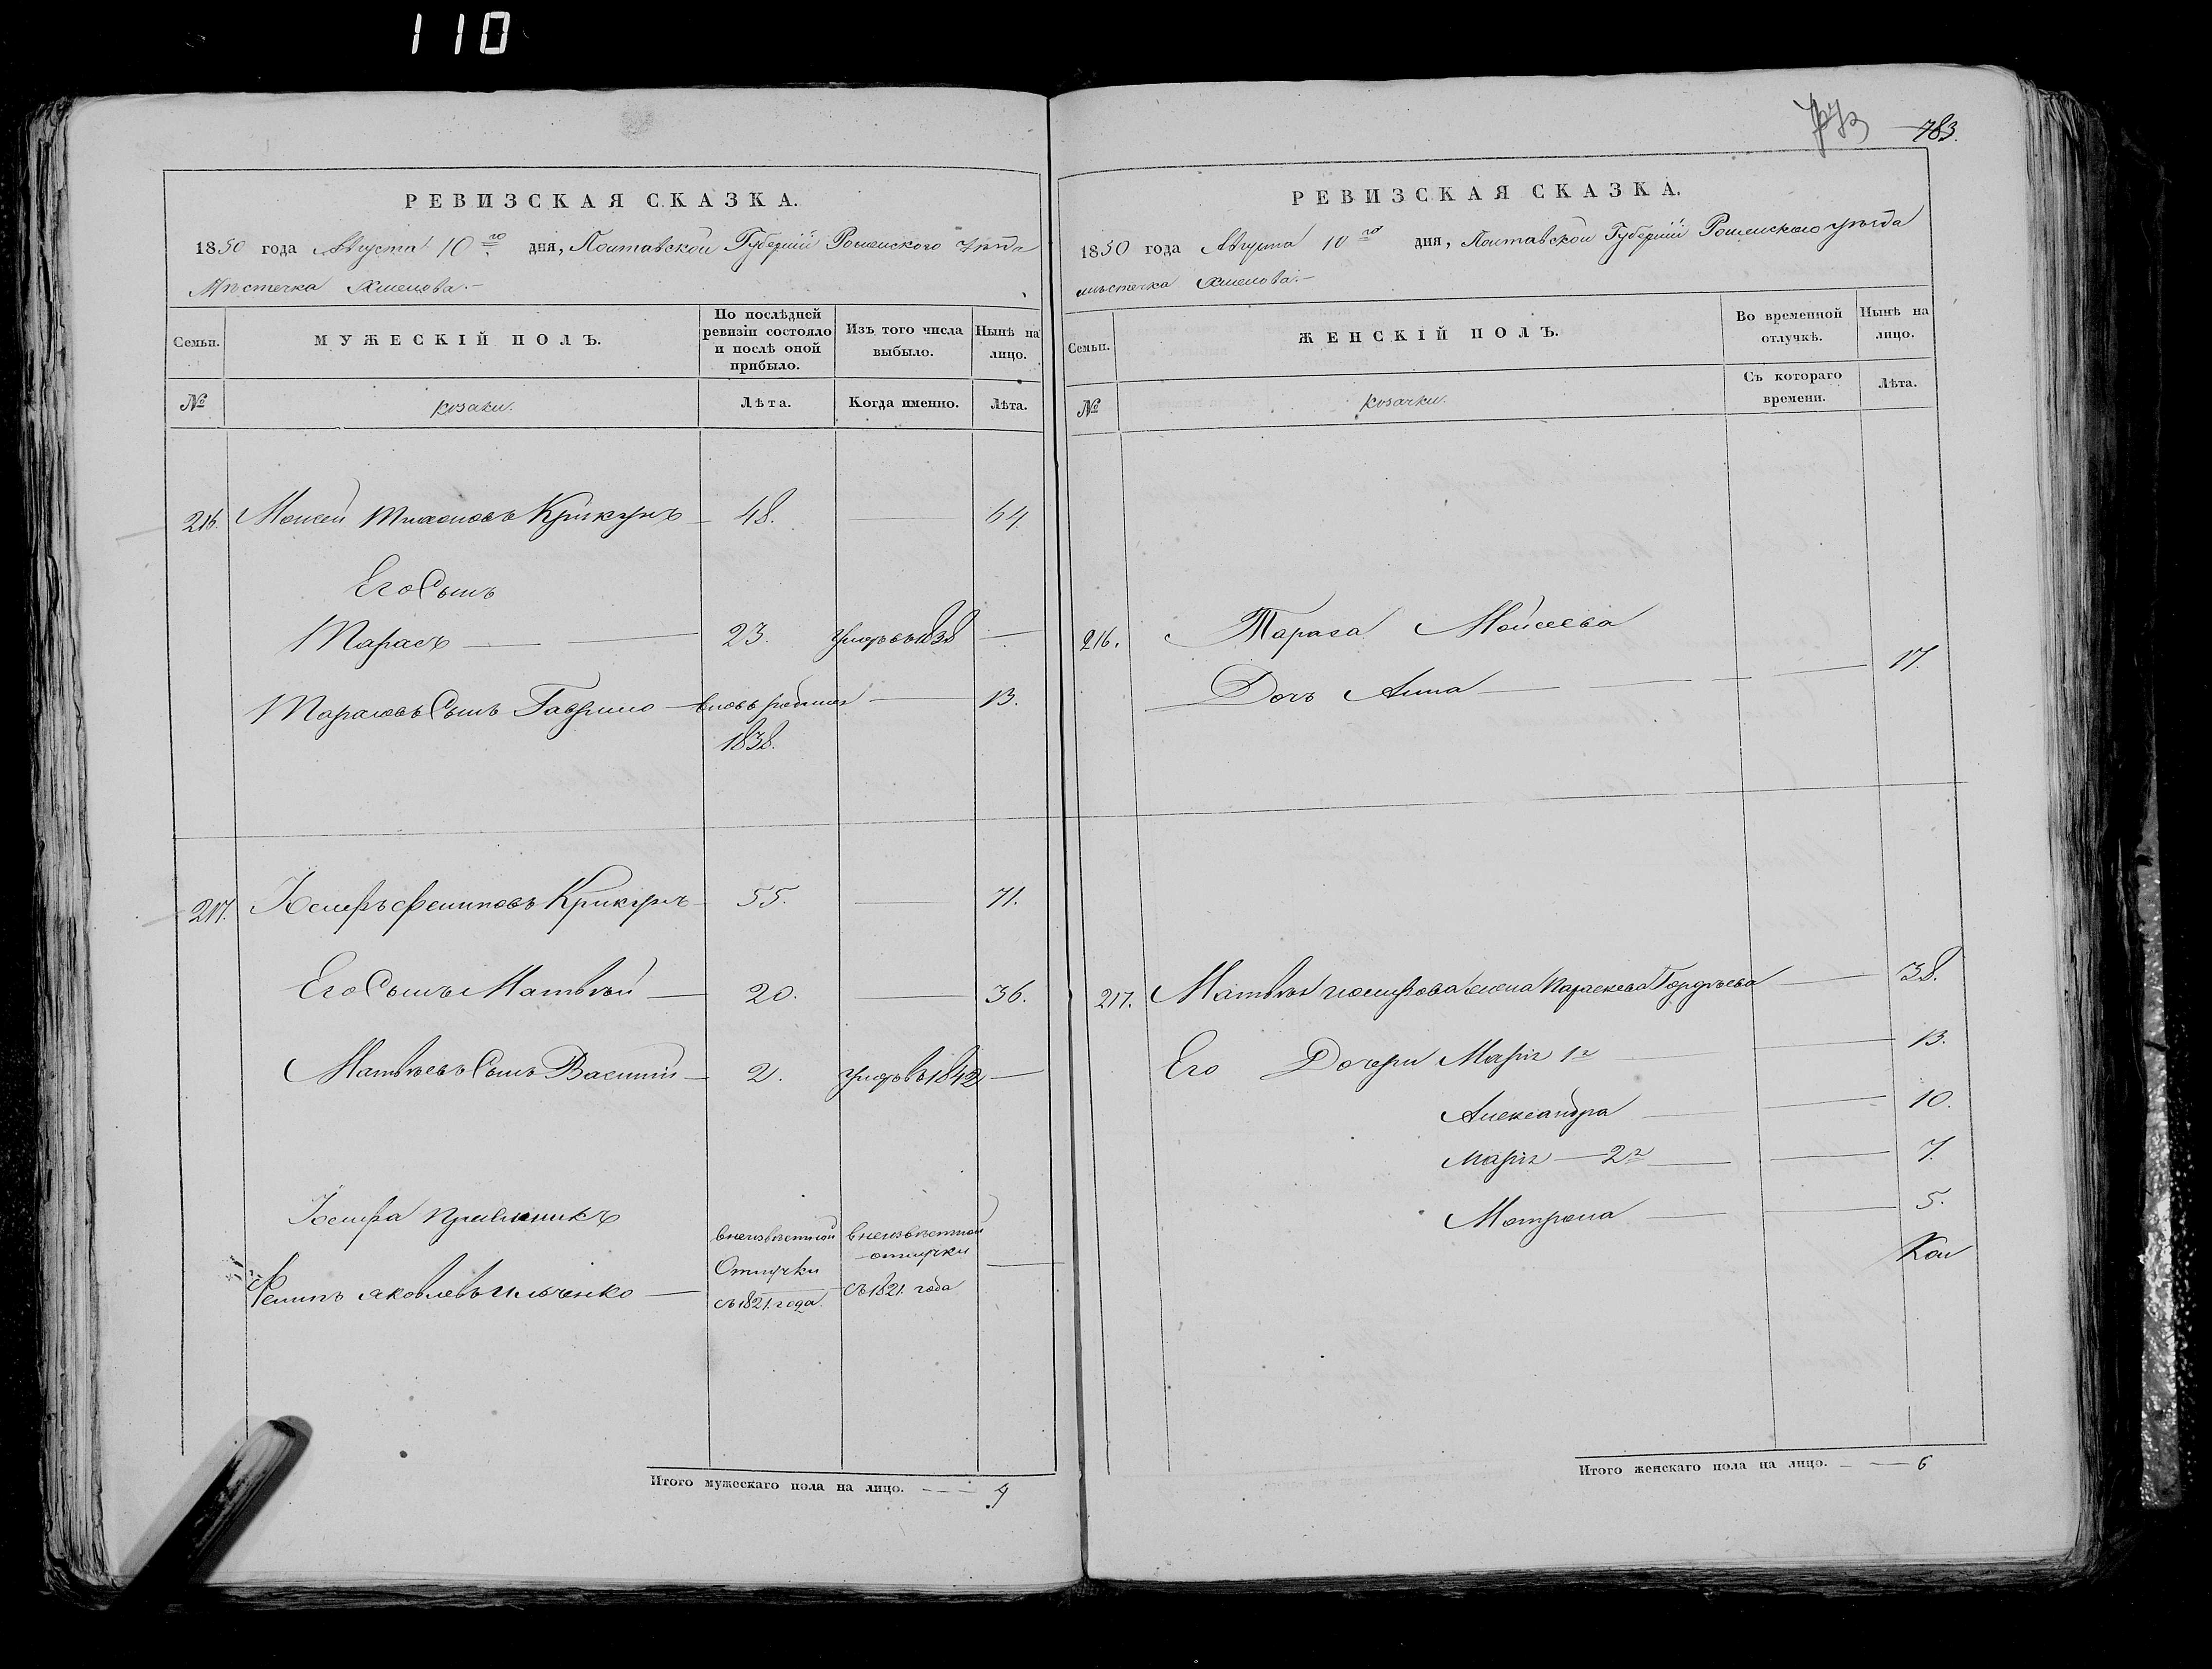 110
783.
РЕВИЗСКАЯ СКАЗКА.
1850 года Августа 10го дня, Полтавской Губерніи Роменского Уѣзда
Мѣстечка Хмелова.
Семьи. МУЖЕСКІЙ ПОЛЪ. По послѣдней ревизіи состояло и послѣ оной прибыло. Изъ того числа выбыло. Нынѣ на лицо.
№ козаки. Лѣта. Когда именно. Лѣта.
216. Моисей Тихоновъ Крикунъ 48. 64
Его Сынъ
Тарасъ 23. умеръ въ 1838
Тарасовъ Сынъ Гаврило вновь рожден 13.
1838.
217. Іосифъ Филиповъ Крикунъ 55. 71.
Его Сынъ Матвѣй 20. 36.
Матвѣевъ Сынъ Василій 2. умеръ въ 1842
Іосифа Племяникъ
в неизвѣстной в неизвѣстной
Отлучки отлучки
Филипъ Яковлевъ Ильченко
съ 1821 года. съ 1821 года
Итого мужескаго пола на лицо. 4
РЕВИЗСКАЯ СКАЗКА.
1850 года Августа 10го дня, Полтавской Губерніи Роменского уѣзда
мѣстечка Хмелова.
Семьи. ЖЕНСКІЙ ПОЛЪ. Во временной отлучкѣ. Нынѣ на лицо.
№ козачки. Съ котораго времени. Лѣта.
216. Тараса Моисеева
Дочь Анна 17.
217. Матвѣя Іосифова жена Параскева Гордѣева 38.
Его Дочери Марія 1я 13.
Александра 10.
Марія 2я 7.
Мотрона 5.
Итого женскаго пола на лицо. 6